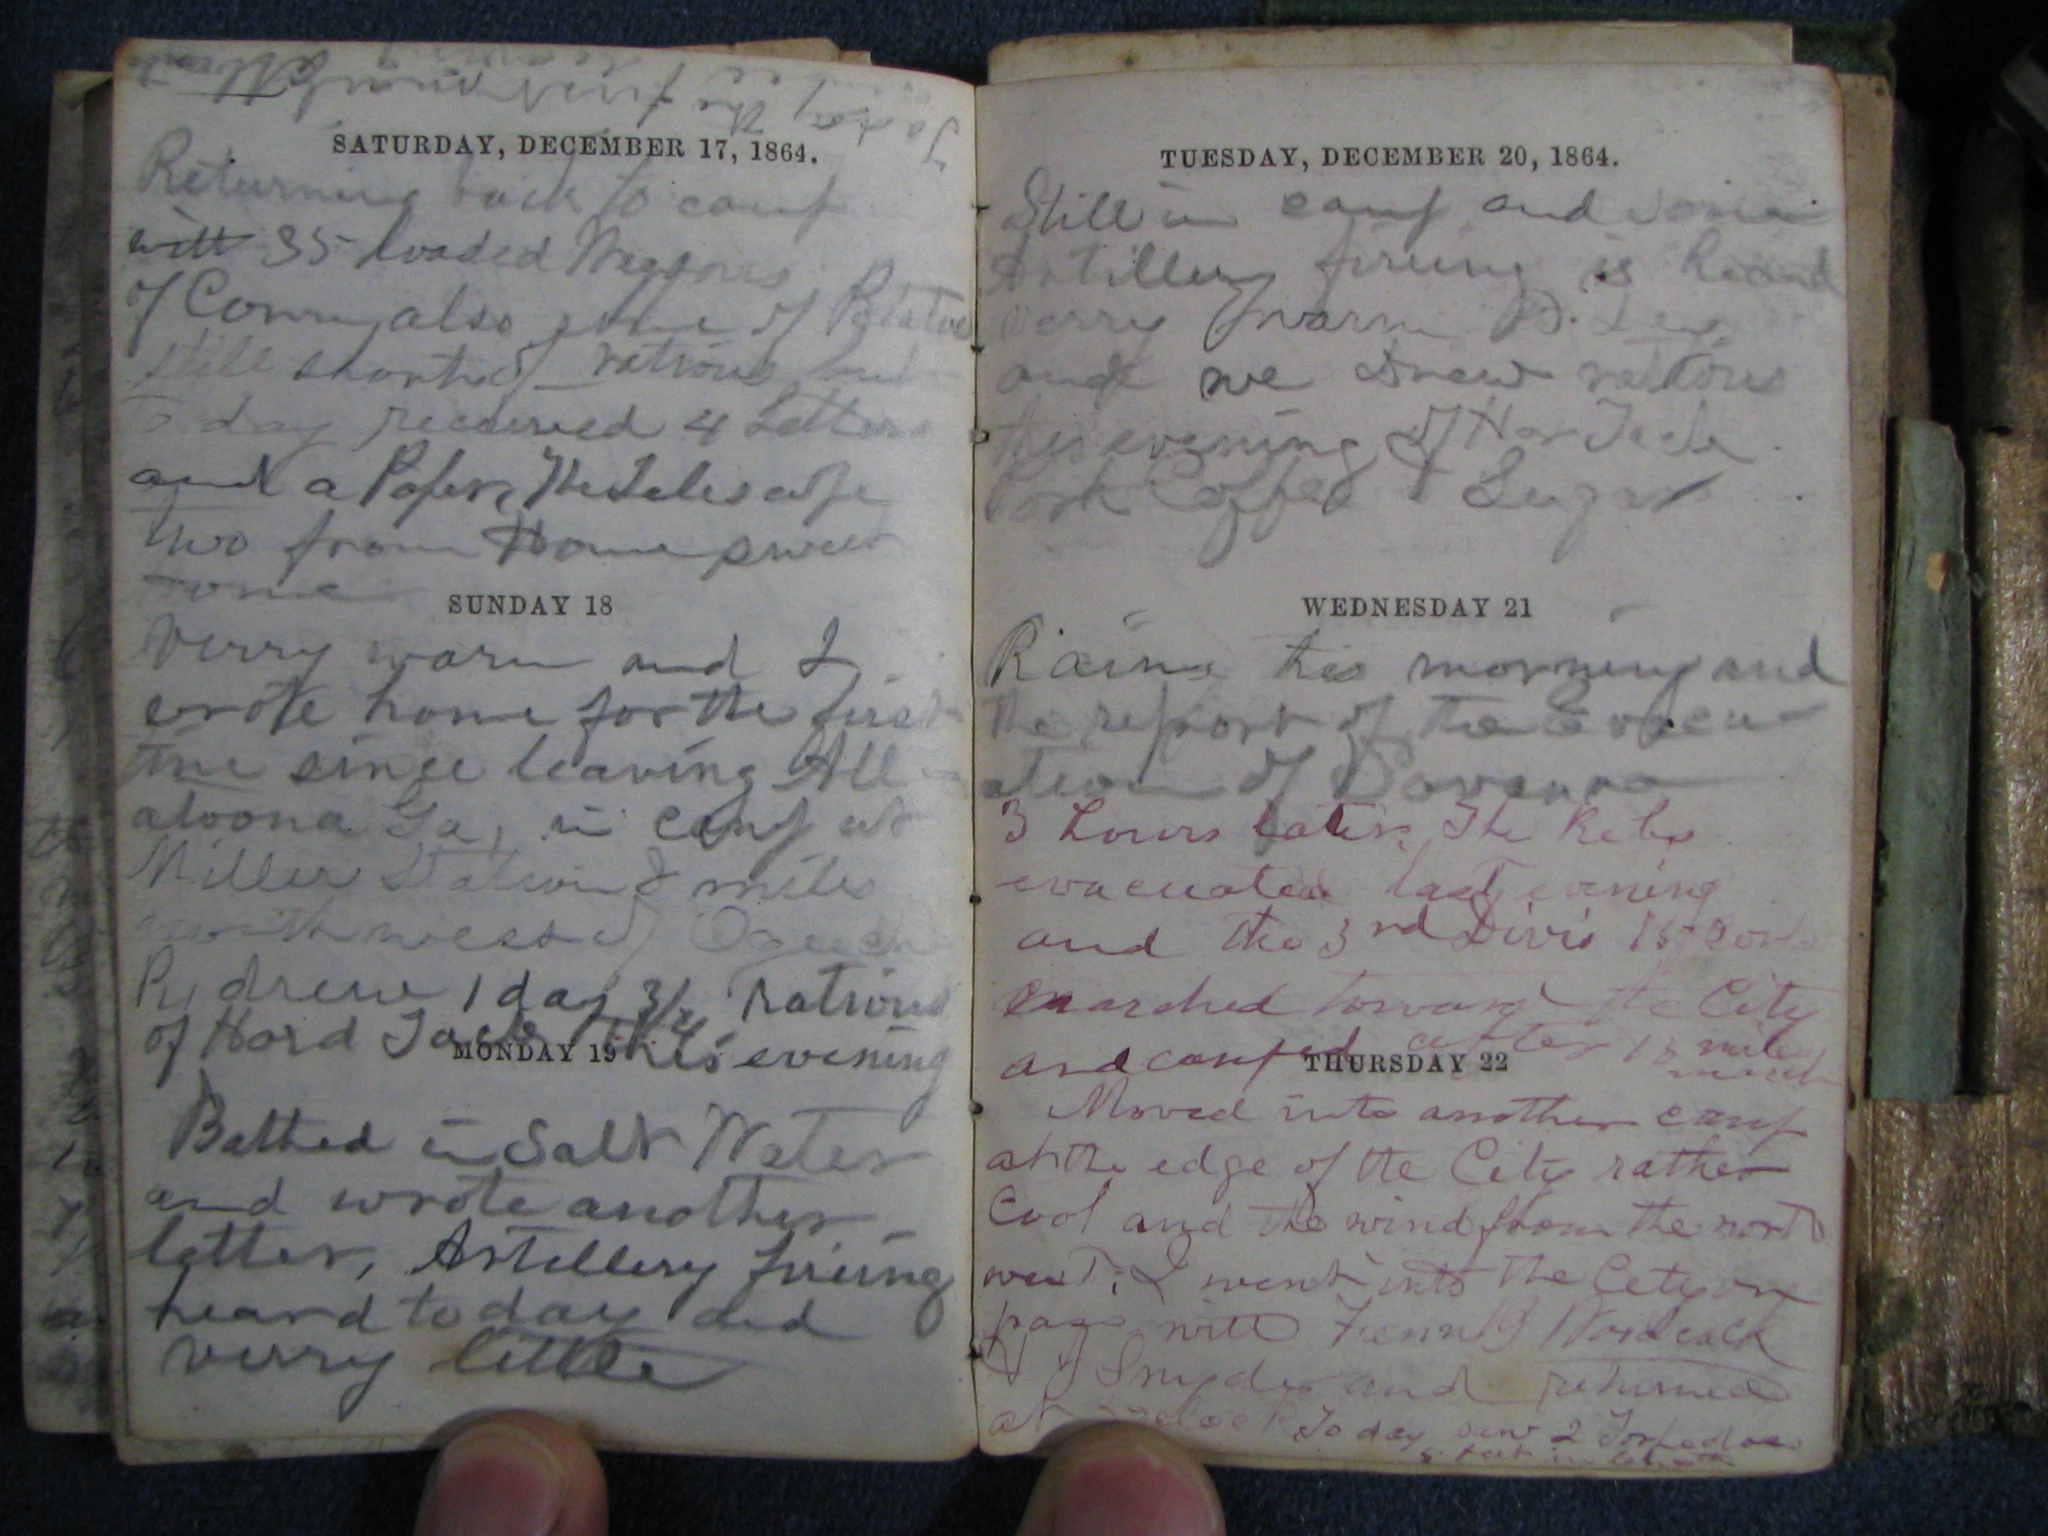 To day the first
SATURDAY, DECEMBER 17, 1864.
Returning back to camp
with 35 loaded Waggons
of Corn, also some of Potatoe
still short of rations but
To day received 4 Letters
and a Paper, The Telescope
two from Home sweet
home
SUNDAY 18
Verry warm and I
wrote home for the first
time since leaving All-
atoona Ga, in camp at
Miller Station 8 miles
northwest of
Ry drew 1 day 3/4 rations
of Hard Tack this evening
MONDAY 19
Bathed in Salt Water
and wrote another
letter, Artillery firing
heard to day and
verry little
TUESDAY, DECEMBER 20, 1864.
Still in camp and some
Artillery firing is heard
verry warm
and we Drew rations
this evening of Har Tack
Pork Coffee & Sugar
WEDNESDAY 21
Rains this morning and
the report of the Evacu-
ation of Savanna
3 hours later, The Rebs
evacuated last evening
and the 3rd Divis 15 Corps
marched toward the City
and camped after 13 miles
march
THURSDAY 22
Moved into another camp
at the edge of the City rather
Cool and the wind from the north
west, I went into the City on
pass with
Snyder and returned
at oclock To day saw 2 Torpedoes